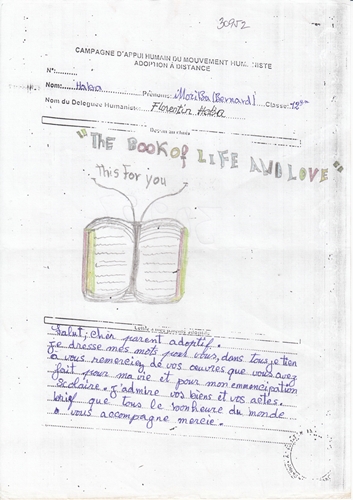 30952
CAMPAGNE D'APPUI HUMAIN DU MOUVEMENT HUMANISTE
ADOPTION À DISTANCE
N°:
Nom: Haba Prénoms: Moriba (Bernard) Classe: 12è
Nom du Délégué Humaniste: Florentin Haba
Dessin au choix
"THE BOOK of LIFE AND LOVE"
This For you
Salut, cher parent adoptif.
Je dresse mes mots pour vous, dans tous je tien
à vous remerciez de vos œuvres que vous avez
fait pour ma vie et pour mon emmencipation
scolaire. J'admire vos biens et vos actes.
brief que tous le bonheure du monde
vous accompagne mercie.